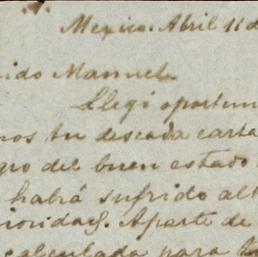 Mexico. Abril 11 d
ido Manuel.
Llegó oportun
nos tu deseada carta
gro del buen estado
habrá sufrido alt
rioridad. Aparte de
calculada para